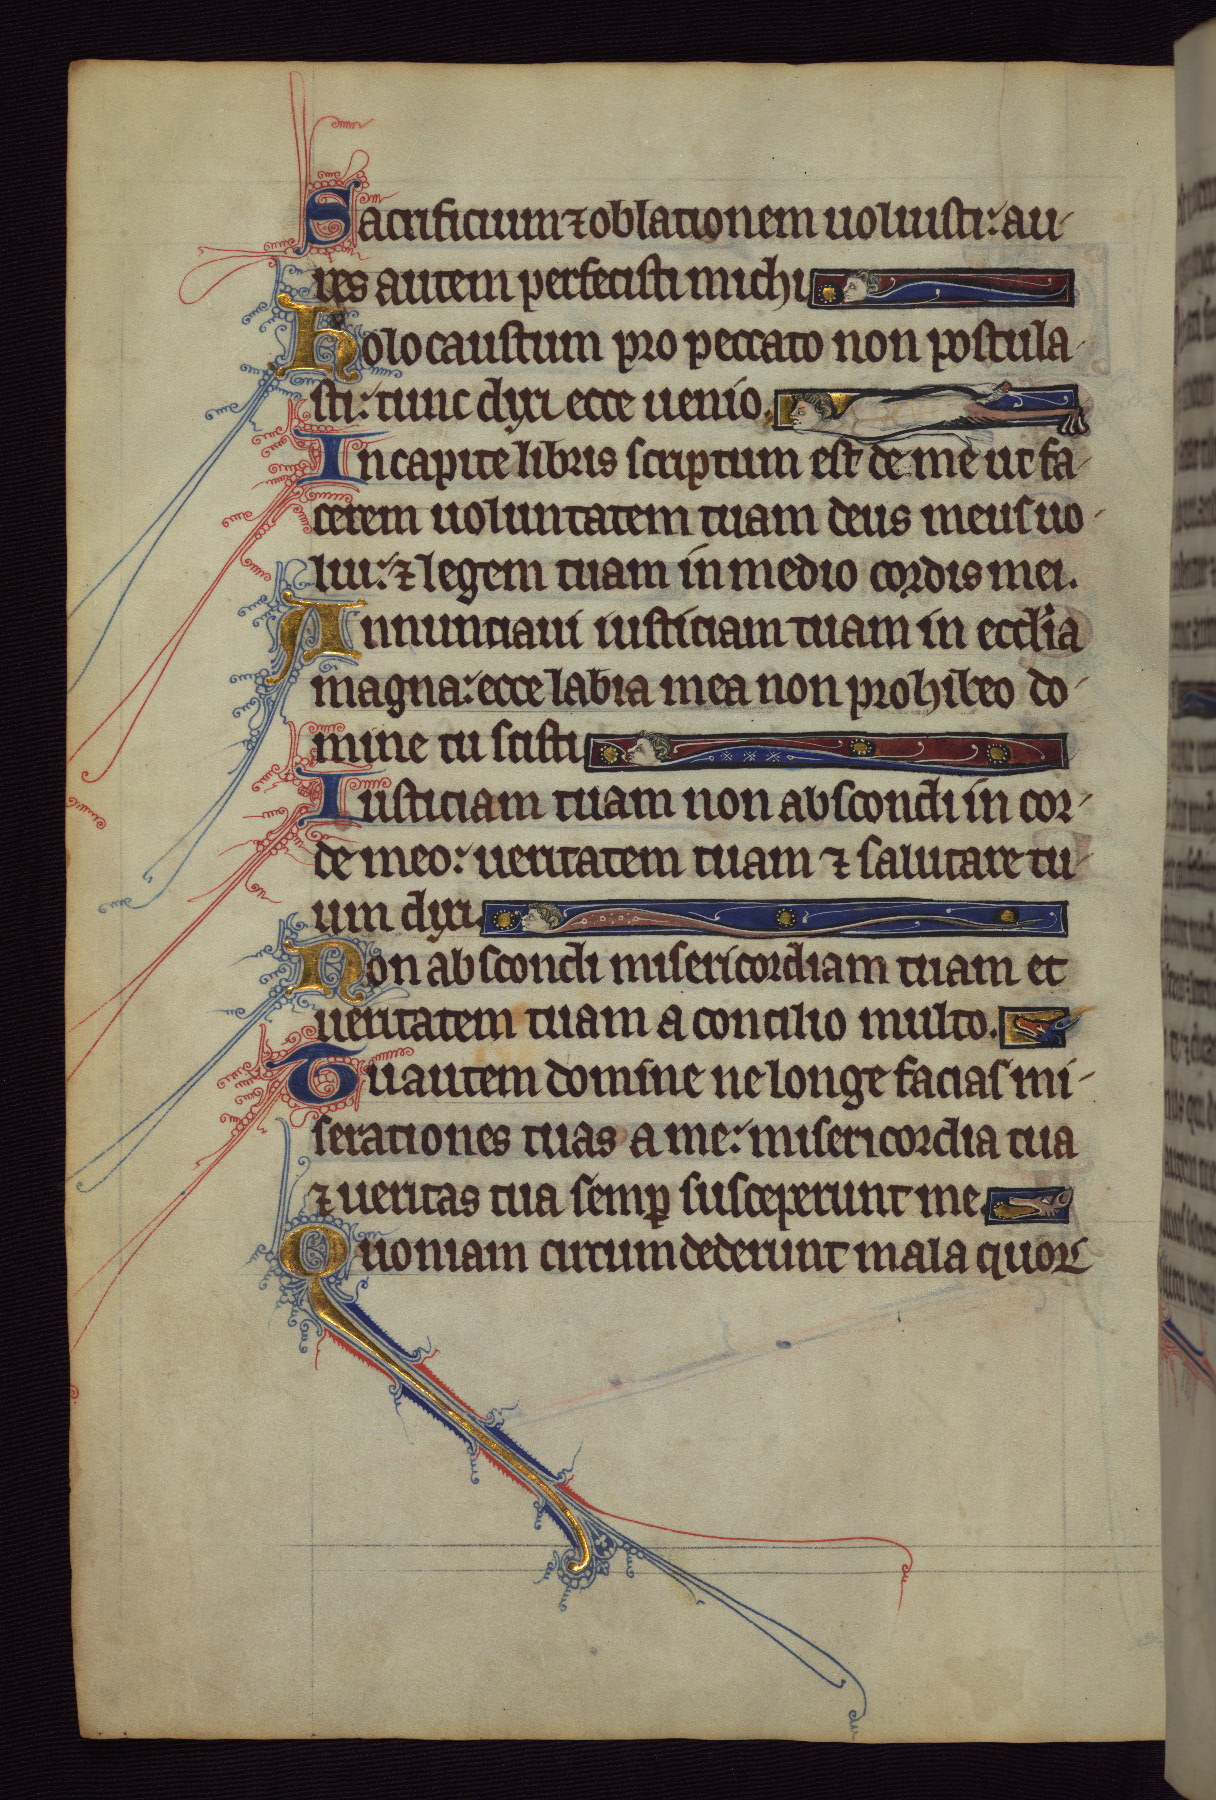 Sacrificium ⁊ oblationem uoluisti: au-
res autem perfecisti michi
Holocaustum pro peccato non postula-
sti: tunc dyxi ecce uenio.
In capite libris scriptum est de me ut fa-
cerem uoluntatem tuam deus meus uo-
lui: ⁊ legem tuam in medio cordis mei.
Annunciaui iusticiam tuam in eccl'ia
magna: ecce labia mea non prohibeo do-
mine tu scisti
Iusticiam tuam non abscondi in cor-
de meo: ueritatem tuam ⁊ salutare tu-
um dyxi
Non abscondi misericordiam tuam et
ueritatem tuam a concilio multo.
Tu autem domine ne longe facias mi-
serationes tuas a me: misericordia tua
⁊ ueritas tua semꝑ susceperunt me
Quoniam circumdederunt mala quoꝝ